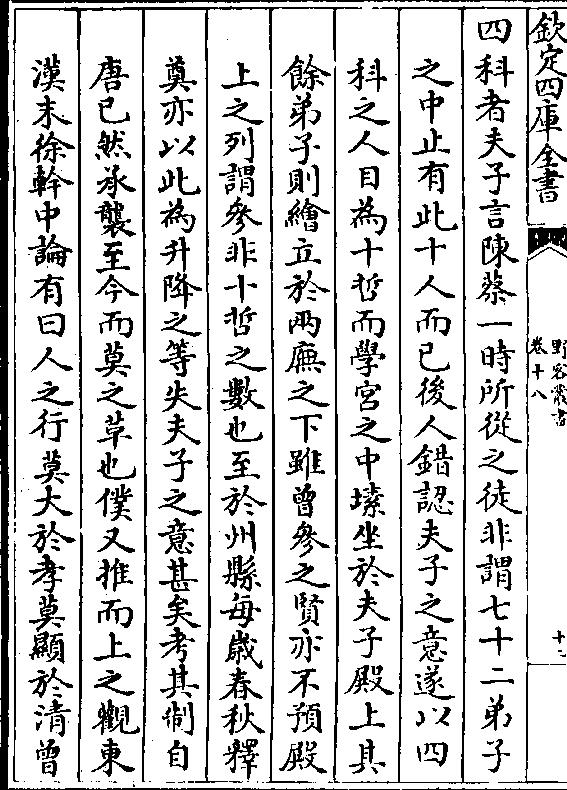 欽定四庫全書
野客叢書
卷十八
四科者夫子言陳蔡一時所從之徒非謂七十二弟子
之中止有此十人而已後人錯認夫子之意遂以四
科之人目為十哲而學宮之中塐坐於夫子殿上其
餘弟子則繪立於兩廡之下雖曾參之賢亦不預殿
上之列謂參非十哲之數也至於州縣每歲春秋釋
奠亦以此為升降之等失夫子之意甚矣考其制自
唐已然承襲至今而莫之草也僕又推而上之觀東
漢末徐幹中論有曰人之行莫大於孝莫顯於清曾